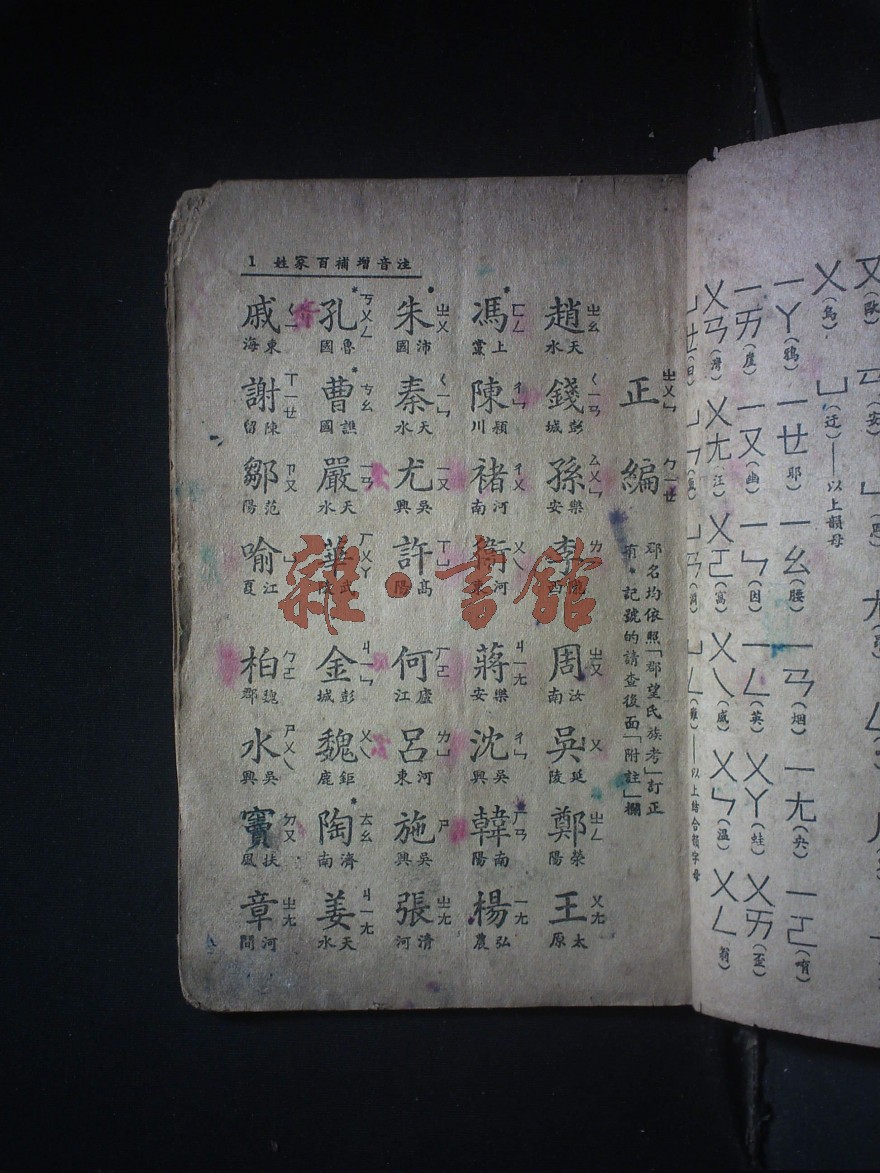 注音增補百家姓 1
正編
郡名均依照「郡望氏族考」訂正
有*記號的請查後面「附註」欄
趙 天水 錢 彭城 孫 樂安 李 隴西 周 汝南 吳 延陵 鄭 滎陽 王 太原
馮 上黨 陳 潁川 褚 河南 衛 河東 蔣 樂安 沈 吳興 韓 南陽 楊 弘農
朱 沛國 秦 天水 尤 吳興 許 高陽 何 廬江 呂 河東 施 吳興 張 清河
孔 魯國 曹 譙國 嚴 天水 華 武陵 金 彭城 魏 鉅鹿 陶 濟南 姜 天水
戚 東海 謝 陳留 鄒 范陽 喻 江夏 柏 魏郡 水 吳興 竇 扶風 章 河間
ㄨ(烏) ㄩ(迂)——以上韻母
ㄧㄚ(鴉) ㄧㄝ(耶) ㄧㄠ(腰) ㄧㄢ(烟) ㄧㄤ(央) ㄧㄛ(唷)
ㄧㄞ(崖) ㄧㄡ(幽) ㄧㄣ(因) ㄧㄥ(英) ㄨㄚ(蛙) ㄨㄞ(歪)
ㄨㄢ(灣) ㄨㄤ(汪) ㄨㄛ(窩) ㄨㄟ(威) ㄨㄣ(溫) ㄨㄥ(翁)
——以上結合韻字母